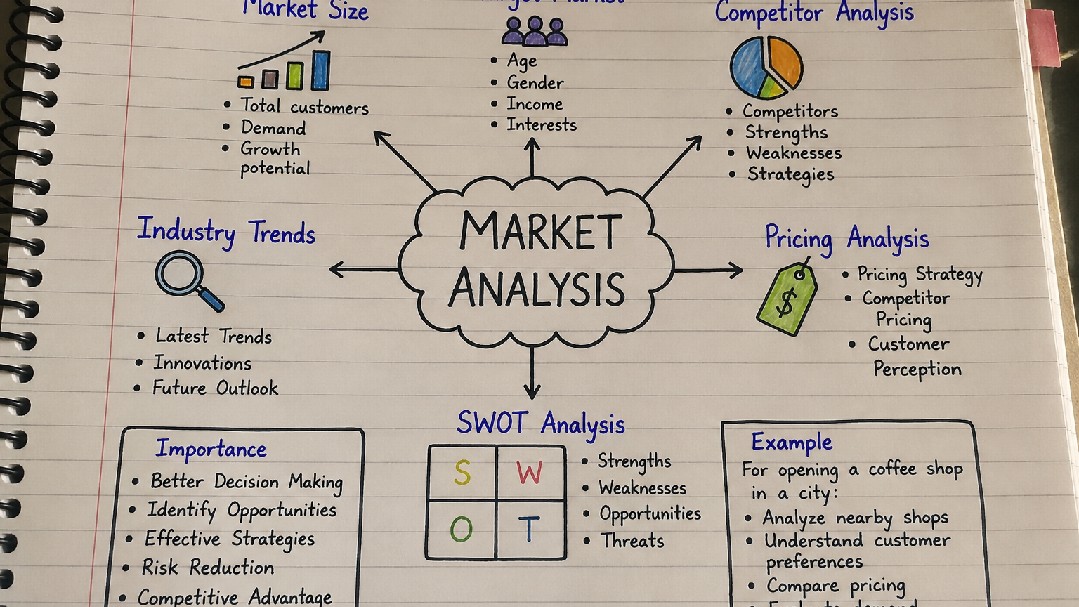 Market Size
Market
Competitor Analysis
Total customers
Demand
Growth
potential
Age
Gender
Income
Interests
Competitors
Strengths
Weaknesses
Strategies
MARKET
ANALYSIS
Industry Trends
Latest Trends
Innovations
Future Outlook
Pricing Analysis
$
Pricing Strategy
Competitor
Pricing
Customer
Perception
SWOT Analysis
S W
O T
Strengths
Weaknesses
Opportunities
Threats
Importance
Better Decision Making
Identify Opportunities
Effective Strategies
Risk Reduction
Competitive Advantage
Example
For opening a coffee shop
in a city:
Analyze nearby shops
Understand customer
preferences
Compare pricing